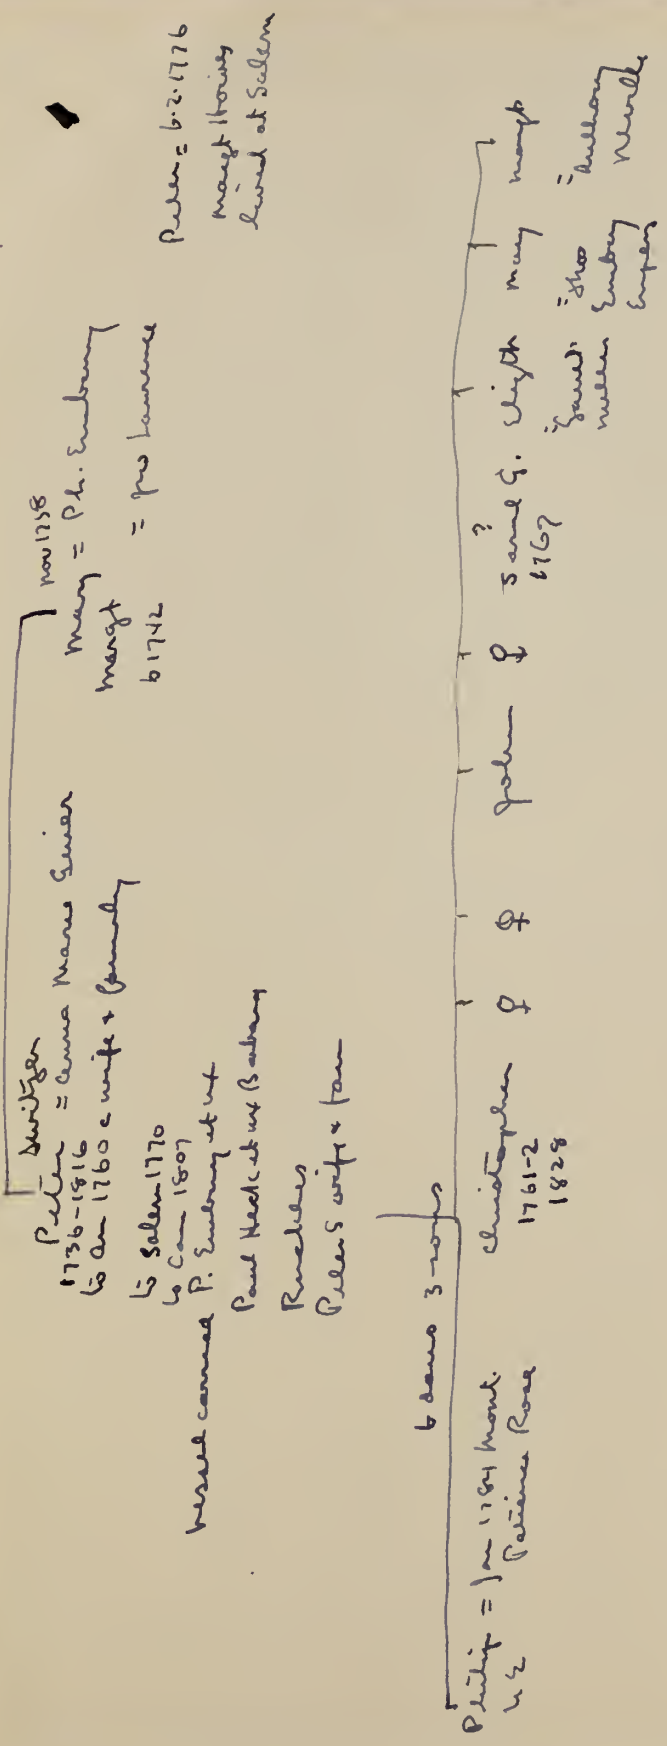 Switzer
Peter = Anna Maria Smier
1736-1816
to Am 1760 c wife & family
to Salem 1770
to Can 1807
vessel carried P. Embury et ux
Paul Heck et ux Barbary
Ruckles
Peter S wife & fam
nov 1758
Mary = Ph. Embury
Margt = Jno Lawrence
b 1742
Peter = 6.2.1776
Margt
lived at Salem
6 daus 3 sons
Philip = Jan 1784 Mont.
Patience Rose
Christopher
1761-2
1828
♀
♀
John
♀
?
Saml G.
1767
Elizth
=
Garret
Miller
Mary
= Jno
Embury
Margt
=
Anthony